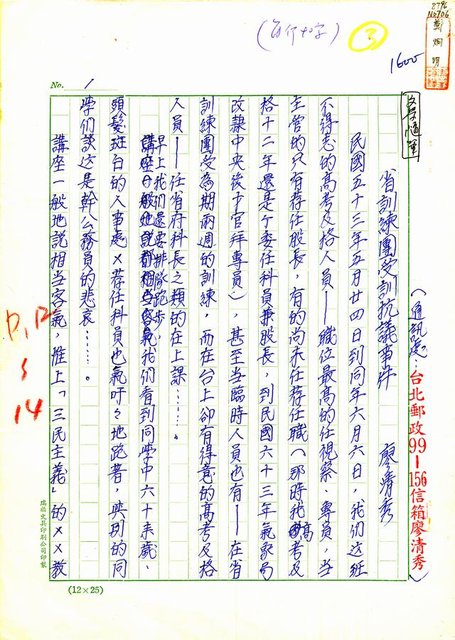 (每行十字)
3
1600
No. 1
省訓練團受訓抗議事件
廖清秀
(通訊處:台北郵政99-156信箱廖清秀)
民國五十三年五月廿四日到同年六月六日,我們這班
不得志的高考及格人員——職位最高的任視察、專員,當
主管的只有荐任股長,有的尚未任荐任職(那時我高考及
格十二年還是个委任科員兼股長,到民國六十三年氣象局
改隸中央後才官拜專員),甚至当臨時人員也有——在省
訓練團受為期兩週的訓練,而在台上卻有得意的高考及格
人員——任省府科長之類的在上課……。
早上我們還要排隊跑步,我們看到同学中六十来歲、
頭髮斑白的人事處×荐任科員也氣吁々地跑着,與別的同
学們談这是幹公務員的悲哀……。
講座一般地說相当客氣,惟上「三民主義」的××教
P.P
5
14
(12×25)